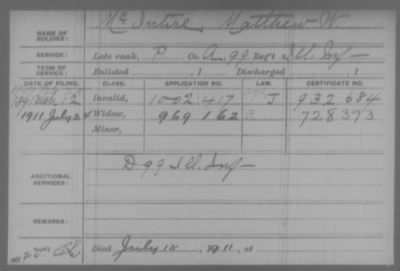 NAME OF SOLDIER: McIntire, Matthew W.
SERVICE: Late rank, P. Co. A, 99 Reg't Ill. Inf
TERM OF SERVICE: Enlisted , 1 Discharged , 1
DATE OF FILING. CLASS. APPLICATION NO. LAW. CERTIFICATE NO.
12 Invalid, 1002.417 J 932684
1911 July Widow, 969162 728393
Minor,
ADDITIONAL SERVICES: D 99 Ill. Inf
REMARKS:
Died July 12, 1911, at